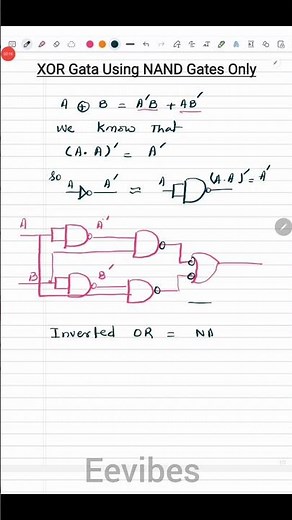 XOR Gata Using NAND Gates Only
A ⊕ B = A'B + AB'
We know that
(A.A)' = A'
So A A' ≈ A (A.A)' = A'
A A'
B B'
Inverted OR = NA
Eevibes